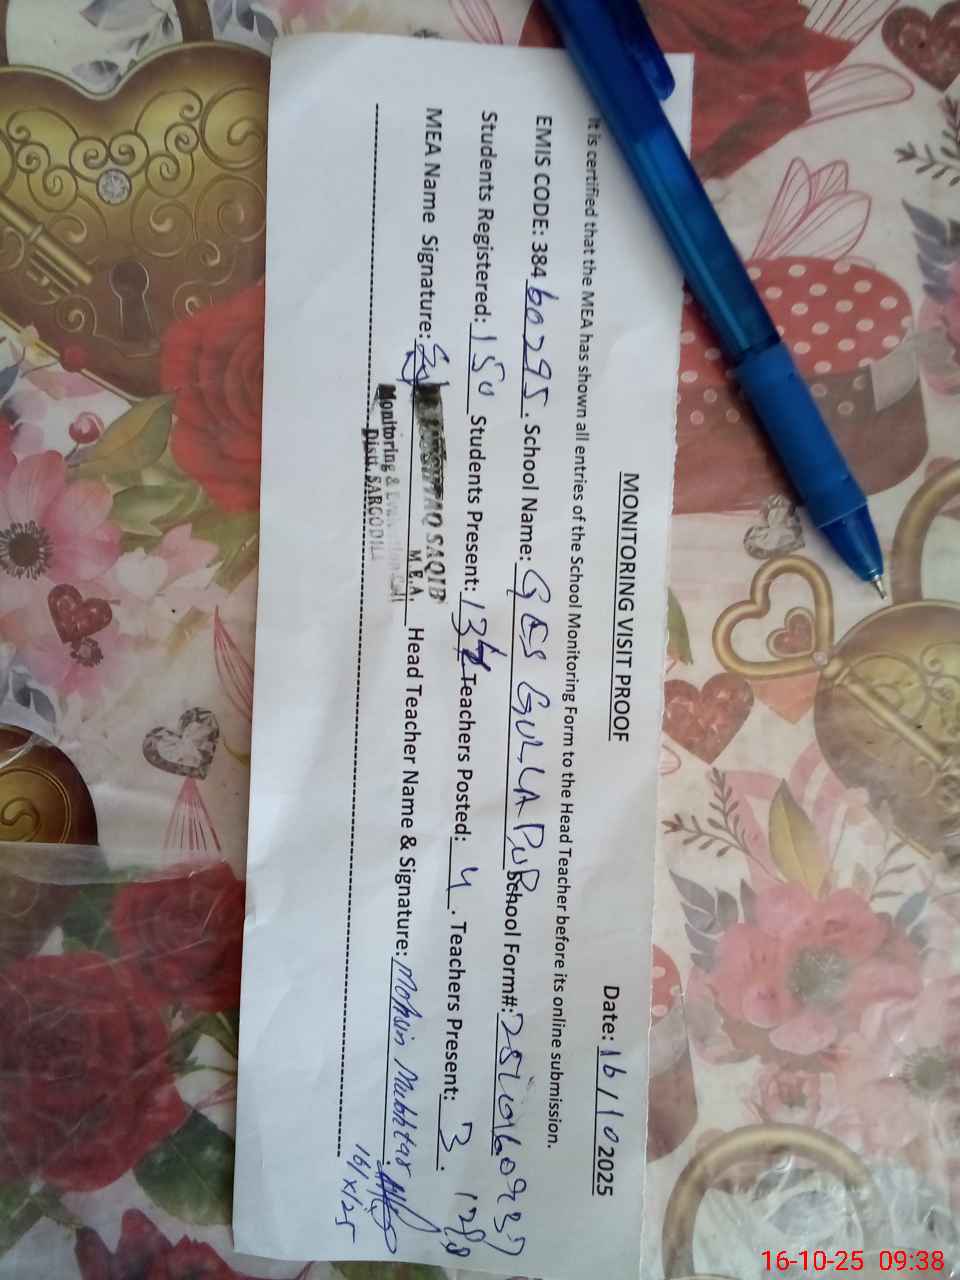 MONITORING VISIT PROOF
Date: 16/10 2025
It is certified that the MEA has shown all entries of the School Monitoring Form to the Head Teacher before its online submission.
EMIS CODE: 38460295. School Name: GES GULLAPUR School Form#:
Students Registered: 150 Students Present: Teachers Posted: 4. Teachers Present: 3.
MEA Name Signature: Head Teacher Name & Signature: Mohsin Mukhtar
SAQIB
M.E.A.
Monitoring &
Distt. SARGODHA
16/X/25
16-10-25 09:38